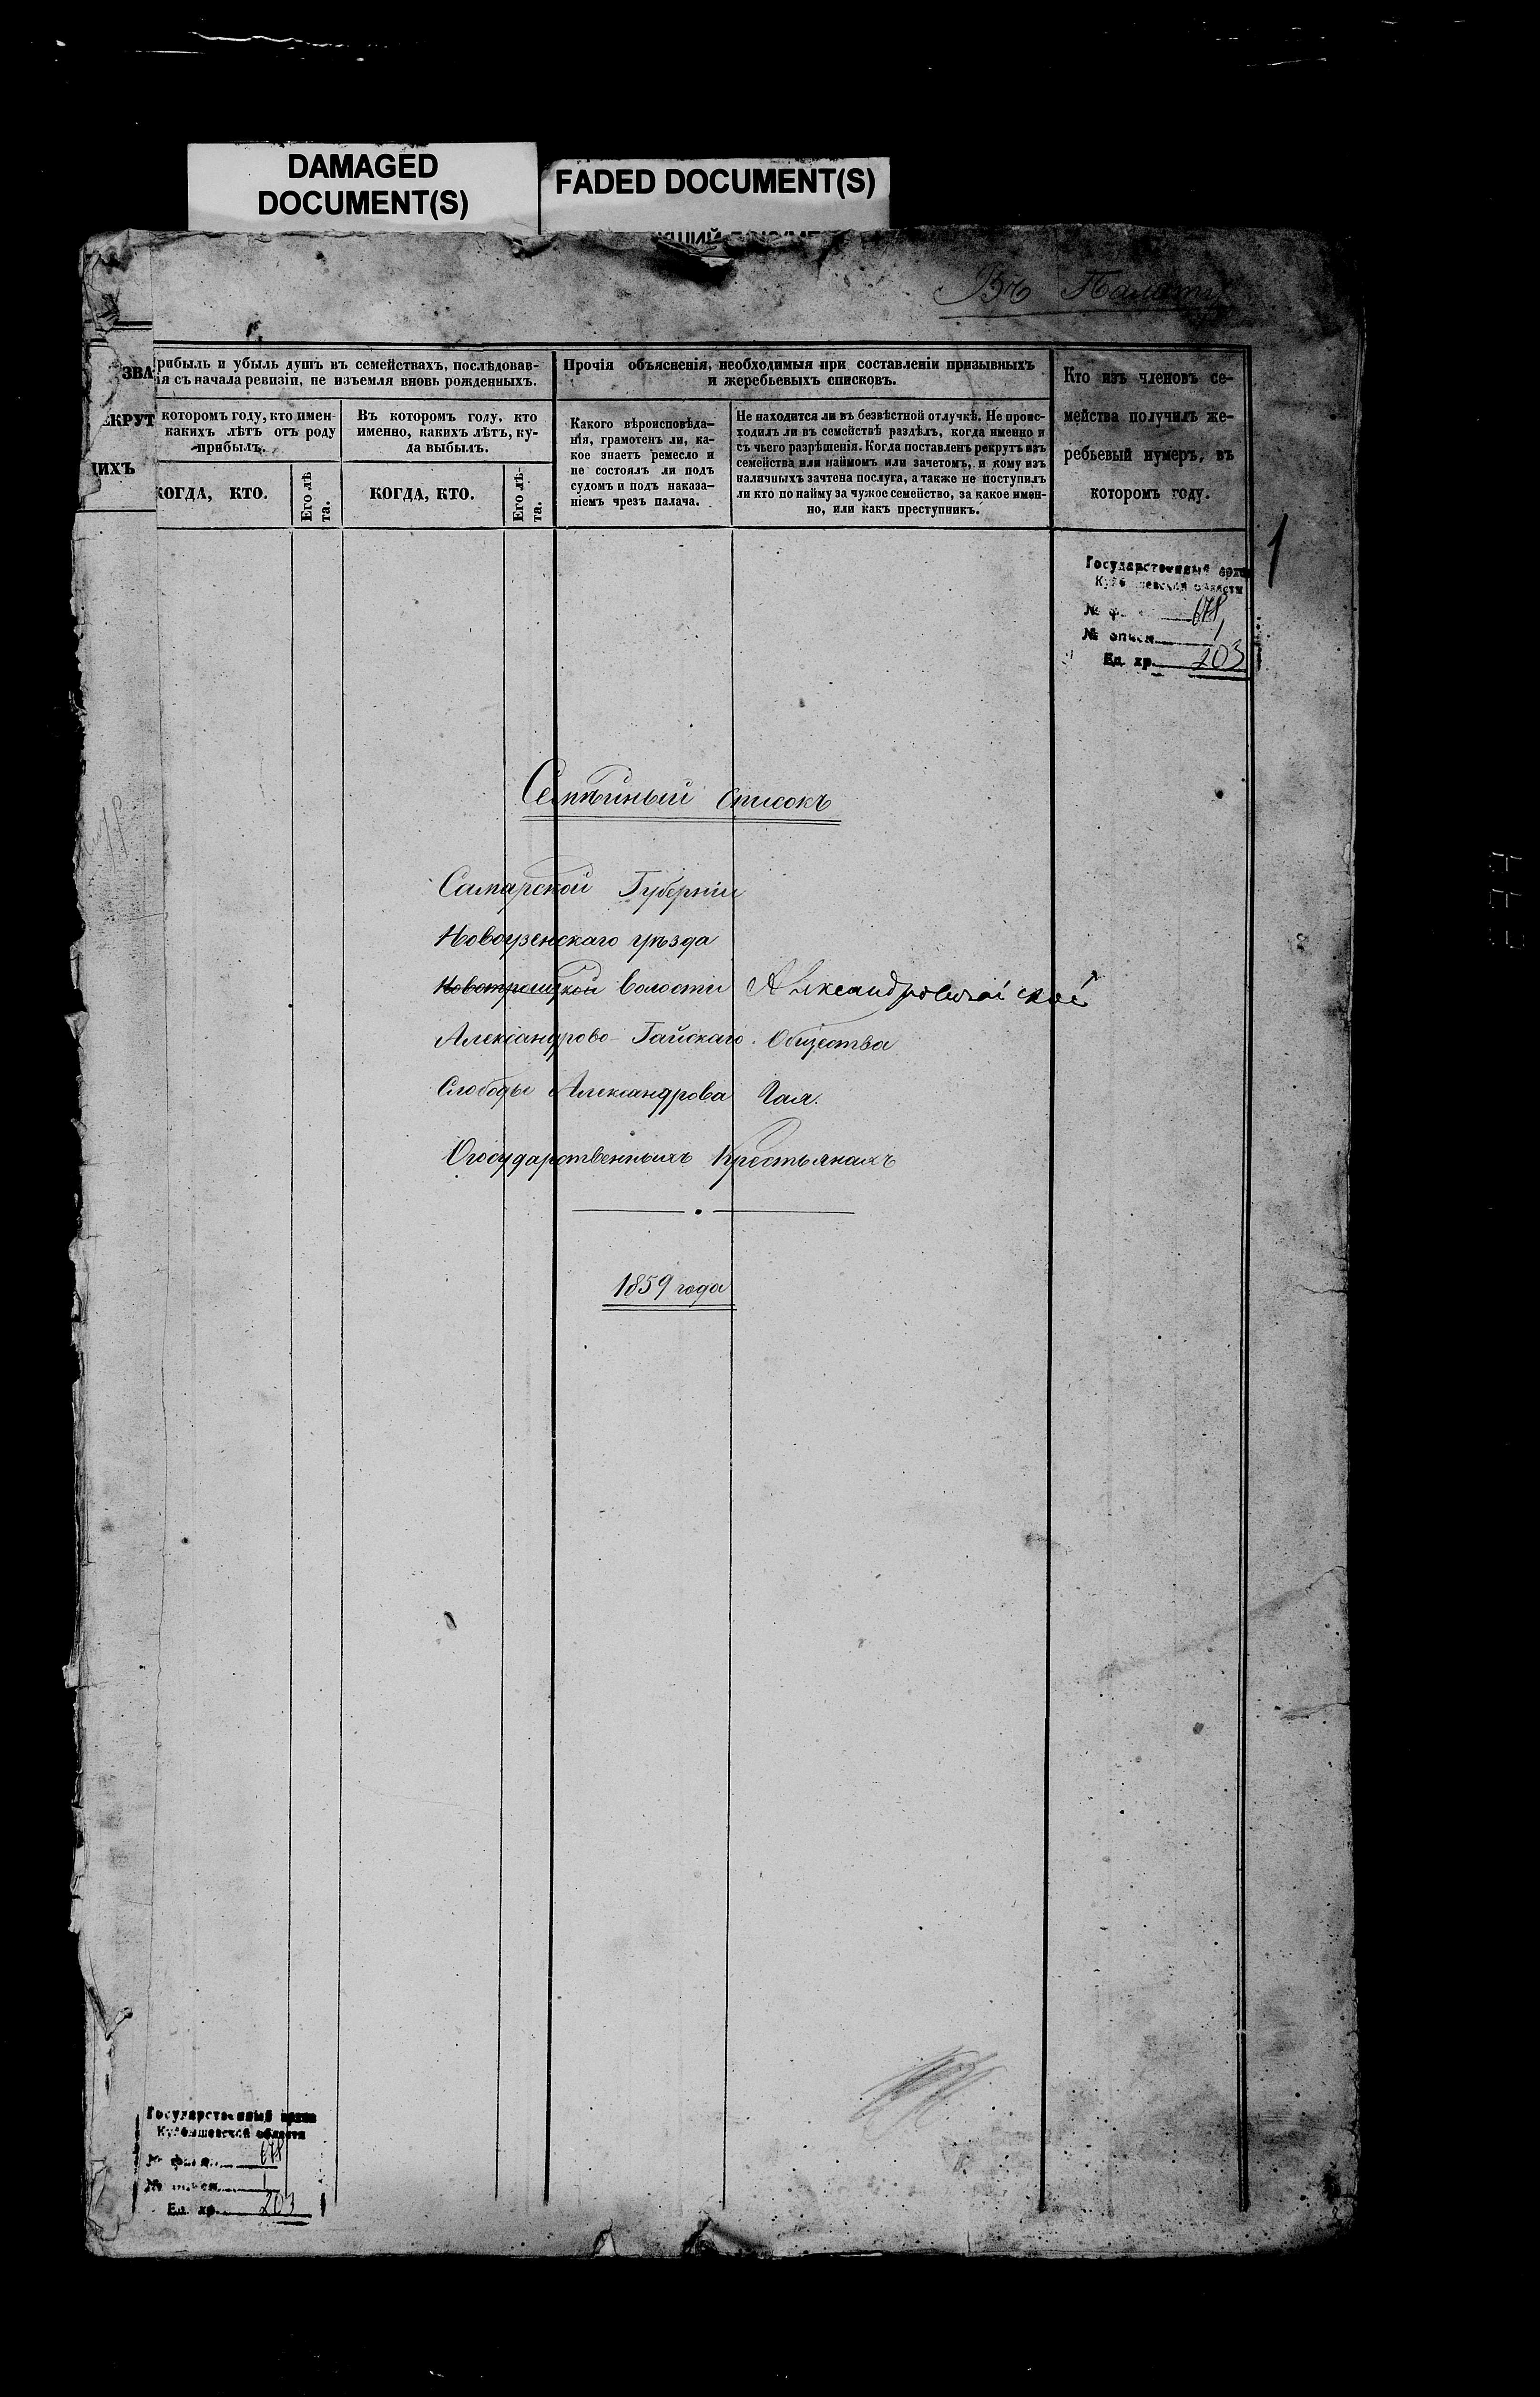 DAMAGED
DOCUMENT(S)
FADED DOCUMENT(S)
Въ Палату
ЗВА
ЕКРУТ
ЩИХЪ
Прибыль и убыль душъ въ семействахъ, послѣдовав-
ія съ начала ревизіи, не изъемля вновь рожденныхъ.
которомъ году, кто имен-
какихъ лѣтъ отъ роду
прибылъ.
КОГДА, КТО.
Его лѣ
та.
Въ которомъ году, кто
именно, какихъ лѣтъ, ку-
да выбылъ.
КОГДА, КТО.
Его лѣ-
та.
Прочія объясненія, необходимыя при составленіи призывныхъ
и жеребьевыхъ списковъ.
Какого вѣроисповѣда-
нія, грамотенъ ли, ка-
кое знаетъ ремесло и
не состоялъ ли подъ
судомъ и подъ наказа-
ніемъ чрезъ палача.
Не находится ли въ безвѣстной отлучкѣ. Не проис-
ходилъ ли въ семействѣ раздѣлъ, когда именно и
съ чьего разрѣшенія. Когда поставленъ рекрутъ изъ
семейства или наймомъ или зачетомъ, и кому изъ
наличныхъ зачтена послуга, а также не поступилъ
ли кто по найму за чужое семейство, за какое имен-
но, или какъ преступникъ.
Кто изъ членовъ се-
мейства получилъ же-
ребьевый нумеръ, въ
которомъ году.
1
Государственный архив
Куйбышевской области
№ ф. 678
№ описи 1
Ед. хр. 203
Семѣйный списокъ
Самарской Губерніи
Новоузенскаго уѣзда
Новотроицкой волости Александровогайской
Александрово-Гайскаго Общества
Слободы Александрова Гая.
О государственныхъ Крестьянахъ
1859 года
Государственный архив
Куйбышевской области
№ фонда 678
№ описи 1
Ед. хр. 203